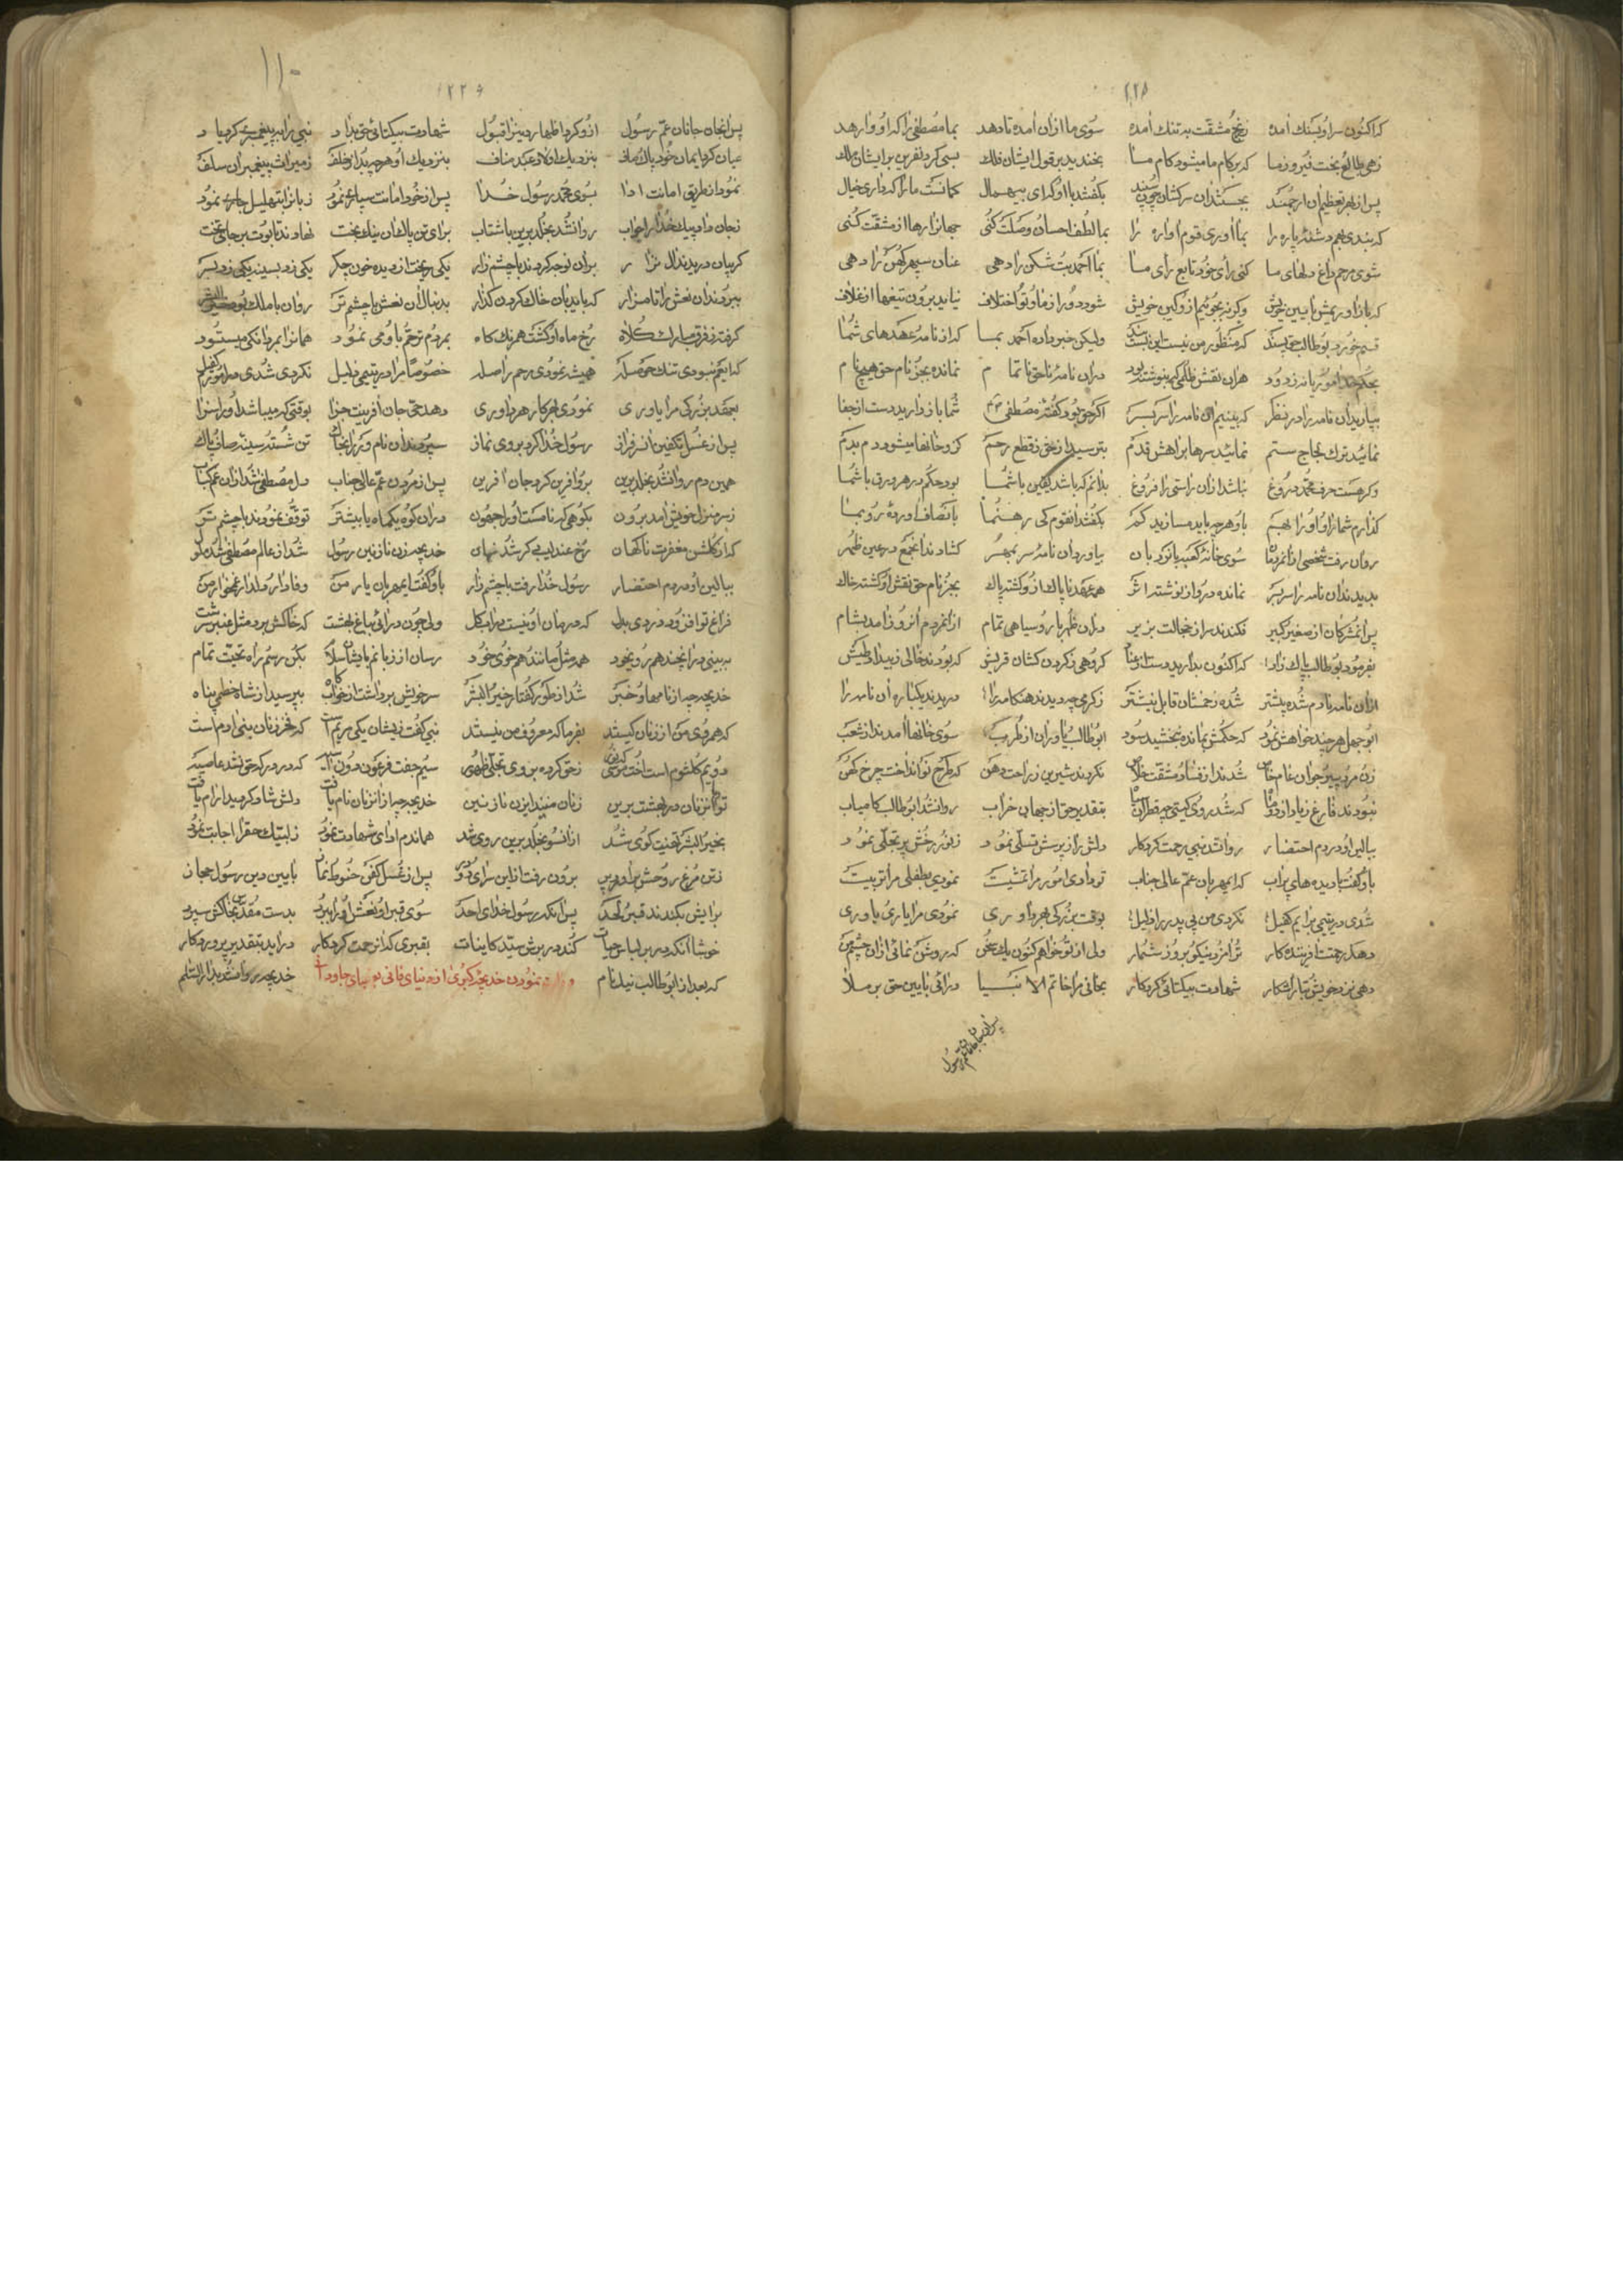 ٢٢٨
که اکنون سر او بسنک امده ز رنج مشقت به تنک امده سوی ما ازان امده تا دهد بما مصطفی را که او وا رهد
زهی طالع بخت فیروز ما که بر کام ما میشود کام ما بخندید بر قول ایشان فلک بسی کرد نفرین بر ایشان ملک
پس از بهر تعظیم ان ارجمند بجستند ان سرکشان چون سپند بکفتند با او که ای بیهمال کمانست ما را که داری خیال
که بندی بهم دشته پاره را بما اوری قوم اواره را بما لطف احسان وصلت کنی جهانرا رها از مشقت کنی
شوی مرهم داغ دلهای ما کنی رای خود تابع رای ما بما احمد بت شکن را دهی عنان سپهر کهن را دهی
که باز اوریمش بایین خویش وکرنه بجوییم ازو کین خویش شود دور از ما و تو اختلاف نیاید برون تیغها از غلاف
قسم خورد بوطالب حق پسند که منظور من نیست این ولیکن خبر داده احمد بما که از نامه عهدهای شما
هران نقش ظلمی که بنوشته بود دران نامه ناحق ناتمام نمانده بجز نام حق هیچ نام
بیارید ان نامه را در نظر که بینیم ان نامه را سر بسر اکر حق بود کفته مصطفی شما باز دارید دست از جفا
نمائید ترک لجاج ستم نمائید سرها براهش قدم بترسید از حق ز قطع رحم کزو خانها میشود دم بدم
وکر هست حرف محمد دروغ نباشد ازان راستی را فروغ بدانم که باشد یقین با شما بود حکم در هر ورق با شما
کذارم شما را و او را بهم باو هر چه باید مسازید کم بکفتند انقوم کی رهنما بانصاف اورده رو بما
روان رفت شخصی ازانمردمان سوی خانه کعبه بیاورد ان نامه سر بمهر کشادند انجمع در عین ظهر
بدیدند ان نامه را سر بسر نمانده درو از نوشته اثر همه عهد ناپاک ازو کشته پاک بجز نام حق نقش او کشته خاک
پس انمشرکان از صغیر کبیر فکندند سر از خجالت بزیر دران ظهر با رو سیاهی تمام ازانمردم انروز امد بشام
بفرمود بوطالب پاک زاد که اکنون بدارید دست از عناد کروهی ز کردن کشان قریش که بودند خالی ز بیداد و طیش
ازان نامه نادم شده پیشتر شده زخمشان قابل نیشتر دریدند یکباره ان نامه را
ابوجهل هر چند خواهش نمود که حکمش بمانده نبخشید سود ابوطالب و یاوران از طرب سوی خانها امدند از شعب
زن مرد و پیر و جوان عام خاص شدند از فساد و مشقت خلاص نکردند شیرین ز راحت دهن که طرح نو انداخت چرخ کهن
نبودند فارغ زیاد از دو ماه که شد روی کیتی سیاه بتقدیر حق از جهان خراب روانشد ابوطالب کامیاب
ببالین او در دم احتضار روانشد نبی رحمت کردکار دلش را ز پرسش تسلی نمود ز نور رخش پر تجلی نمود
باو کفت با دیده های پر اب که ایمهربان عم عالی جناب تو دادی امور مرا تمشیت نمودی بطفلی مرا تربیت
شدی در یتیمی مرا یم کفیل نکردی من بی پدر را ذلیل بوقت بزرکی بهر داوری نمودی مرا یاری یاوری
دهد رحمت افریننده کار ترا مزد نیکو بروز شمار ولی از تو خواهم کنون یک سخن که روشن نمائی ازان چشم من
دهی نزد خویش تبار اشکار شهادت بیکتائی کردکار بخوانی مرا خاتم الانبیا درائی بایین حق بر ملا
پس انجان جانان عم رسول
١١٠
٢٢٩
پس انجان جانان عم رسول ازو کرد اظهار دینرا قبول شهادت بیکتائی حق بداد نبی را به پیغمبری کرد یاد
عیان کرد ایمان خود پاک صاف بنزدیک اولاد عبد مناف بنزدیک او هر چه بد از خلف ز میراث پیغمبران سلف
نمود از طریق امانت ادا بسوی محمد رسول خدا پس از خود امانت سپاری نمود زبانرا بتهلیل جاری نمود
ز جان داد پیک خدا را جواب روانشد بخلد برین با شتاب برای تن پاک ان نیک بخت نهادند تابوت بر جای تخت
کریبان دریدند ال نزار بران نوحه کردند با چشم زار یکی ریخت از دیده خون جکر یکی زد بسینه یکی زد بسر
ببردند ان نعش را تا مزار که باید بان خاک کردن کذار بدنبال ان نعش با چشم تر روان با ملک بود خیر البشر
کرفته ز فرق مبارک کلاه رخ ماه او کشته همرنک کاه بمردم ترحم باو می نمود همانرا بمردانکی میستود
که ایعم نبودی تنک حوصله همیشه نمودی رحم را صله خصوصا مرا در یتیمی ذلیل نکردی شدی در امورم کفیل
بعهد بزرکی مرا یاوری نمودی بهر کار هر داوری دهد حق جان افرینت جزا بوقتی که میباشد او را سزا
پس از غسل تکفین ان سرفراز رسول خدا کرد بر وی نماز سپردند ان نام ور را بخاک تن شسته سینه صاف پاک
همین دم روانشد بخلد برین برو افرین کرد جان افرین پس از مردن عم عالی جناب دل مصطفی شد ازان غم کباب
ز سر منزل خویش امد برون بکوهی که نامست او را حجون دران کوه یکماه یا بیشتر توقف نمودند با چشم تر
که از کلشن مغفرت ناکهان رخ عندلیبی کر شد نهان خدیجه زن نازنین رسول شد از عالم مصطفی شد ملول
ببالین او در دم احتضار رسول خدا رفت با چشم زار باو کفت ایمهربان یار من وفادار دلدار غمخوار من
فراغ تو افزود دردی بدل که درمان او نیست در اب کل ولی چون درائی بباغ بهشت که خاکش بود مثل عنبر سرشت
ببینی در انجند هم رو بخود همه مثل مانند هم خوی خود رسان از زبانم بایشان سلام بکن رسم راه تحیت تمام
خدیجه چه از نامها و خبر شد از طور کفتار خیر البشر سر خویش برداشت از خوابکاه بپرسید از شاه خطمی پناه
که همروی من از زنان کیستند بفرما که معروف من نیستند نبی کفت زیشان یکی مریم است که فخر زنان بنی ادم است
دویم کلثوم است اخت موسی که نور ز حق کرده بر وی تجلی ظهور سیم جفت فرعون دون اسیه که در درکه حق نشد عاصیه
تو با انزنان در بهشت برین زنان منید ایزن نازنین خدیجه چه از انزنان نام یافت دلش شاد کردید ارام یافت
بخیر البشر تهنیت کوی شد ازانسو بخلد برین روی شد هماندم ادای شهادت نمود ز لبیک حقرا اجابت نمود
ز تن مرغ روحش براورد پر برون رفت از این سرای دو در پس از غسل کفن حنوط نماز بایین دین رسول حجاز
برایش بکندند قبر لحد پس انکه رسول خدای احد سوی قبر او نعش او را ببرد بدست مقدس بخاکش سپرد
خوشا انکه در بر لباس حیات کند در برش سید کاینات بقبری که از رحمت کردکار دراید بتقدیر پروردکار
که بعد از ابوطالب نیک نام نمودن خدیجه کبری از دنیای فانی خدیجه روانشد بدار السلام